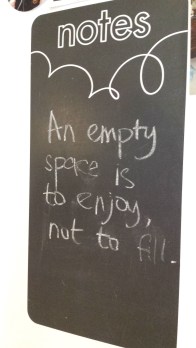 notes
An empty
space is
to enjoy,
not to fill.